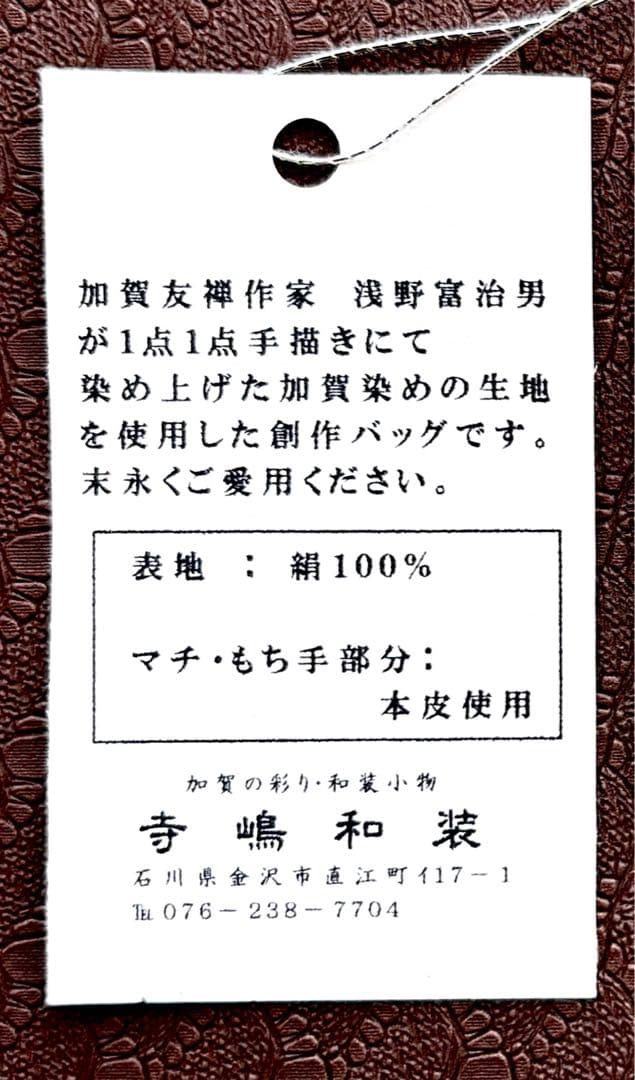 加賀友禅作家　浅野富治男
が1点1点手描きにて
染め上げた加賀染めの生地
を使用した創作バッグです。
末永くご愛用ください。
表地　：　絹100％
マチ・もち手部分：
本皮使用
加賀の彩り・和装小物
寺嶋和装
石川県金沢市直江町イ17－1
℡076－238－7704